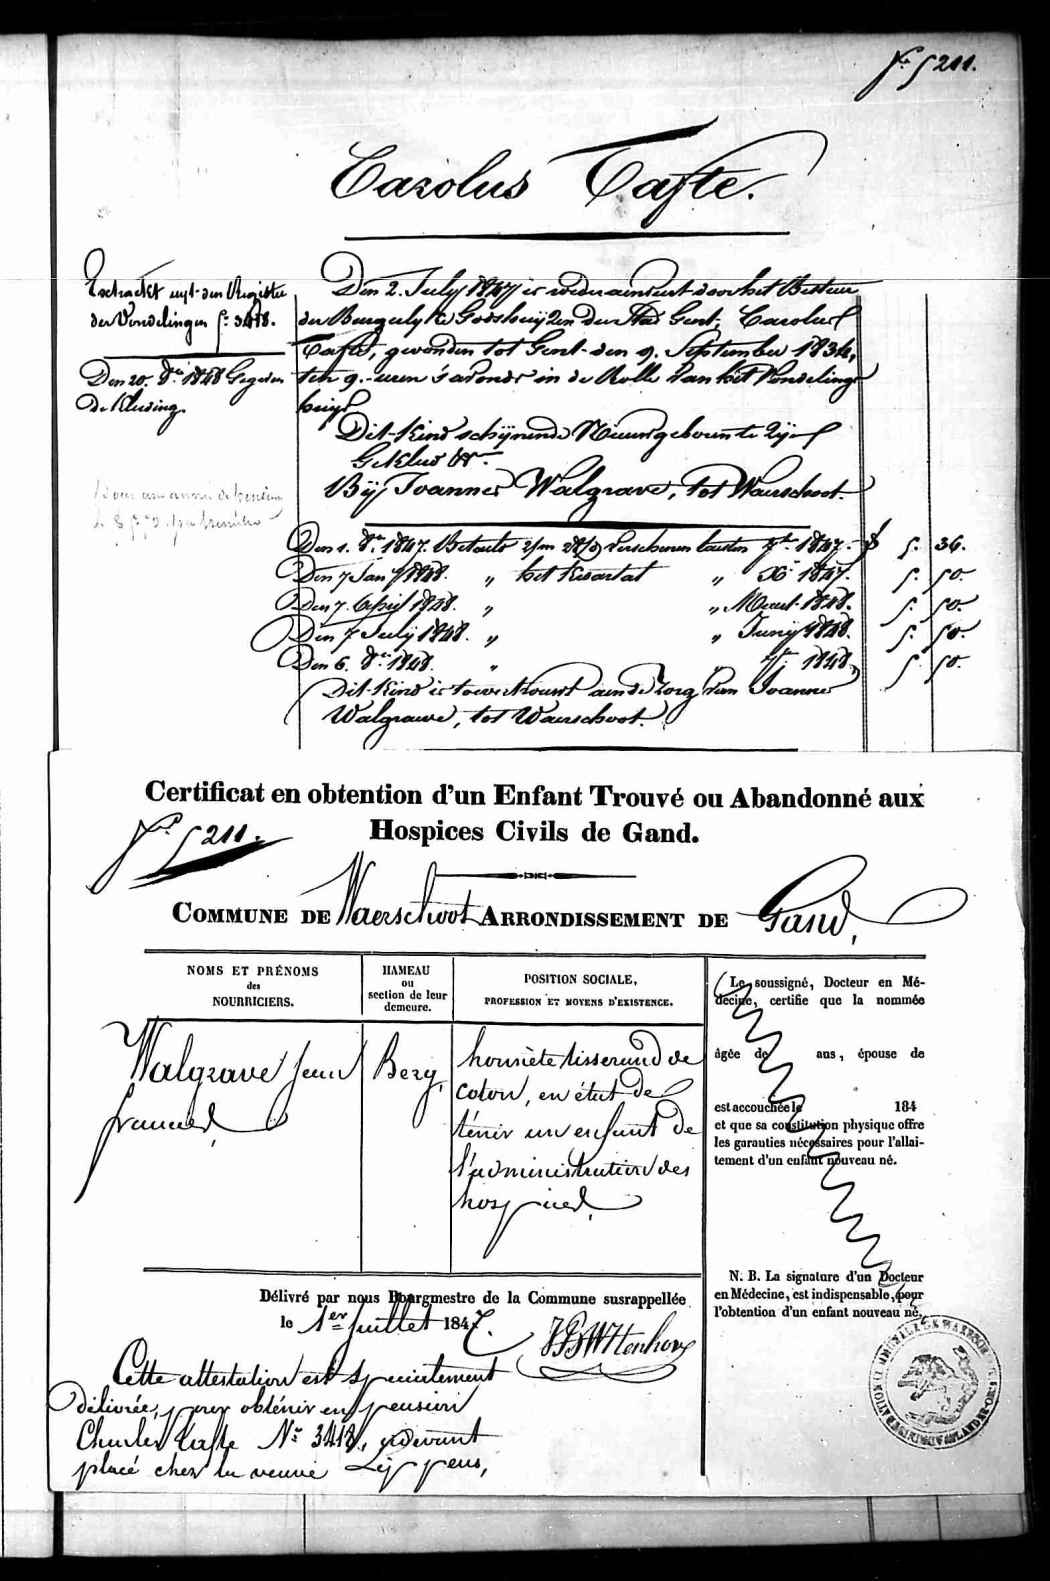 Nº 5211.
Carolus Tafte.
Extract uyt den Register
der Vondelingen Nº 3418.
Den 20. 8bre 1848 Gegeven
De Kleeding.
Den 2. July 1847 is wederaenveert door het Bestuer
der Burgerlyke Godshuyzen der Stad Gent, Carolus
Tafte, gevonden tot Gent den 9. September 1834,
ten 9. uren s'avonds in de Rolle van het Vondeling
huys
Dit Kind schynende Nieuwgeboren te Zyn
Gekleed &a
By Joannes Walgrave, tot Waerschoot.
Den 1. 8bre 1847. Betaelt Verschenen 7bre 1847. 5. 36.
Den 7 Jany 1848. " het Kwartael " Xbre 1847. 5. 50.
Den 7. April 1848. " " Maert 1848. 5. 50.
Den 7 July 1848. " " Juny 1848. 5. 50.
Den 6. 8bre 1848. " " 7bre 1848. 5. 50.
Dit Kind is toevertrouwt aen de zorg van Joannes
Walgrave, tot Waerschoot.
Certificat en obtention d'un Enfant Trouvé ou Abandonné aux
Hospices Civils de Gand.
Nº 5211.
COMMUNE DE Waerschoot ARRONDISSEMENT DE Gand,
NOMS ET PRÉNOMS
des
NOURRICIERS.
HAMEAU
ou
section de leur
demeure.
POSITION SOCIALE,
PROFESSION ET MOYENS D'EXISTENCE.
Walgrave Jean
francies,
Berg,
honnête tisserand de
coton, en état de
ténir un enfant de
l'administration des
hospices,
Le soussigné, Docteur en Mé-
decine, certifie que la nommée
âgée de ans, épouse de
est accouchée le 184
et que sa constitution physique offre
les garanties nécessaires pour l'allai-
tement d'un enfant nouveau né.
N. B. La signature d'un Docteur
en Médecine, est indispensable, pour
l'obtention d'un enfant nouveau né.
Délivré par nous Bourgmestre de la Commune susrappellée
le 1er Juillet 1847.
Cette attestation est spécialement
délivrée, pour obténir en pension
Charles Tafte Nº 3418, ci devant
placé chez la veuve Leppens,